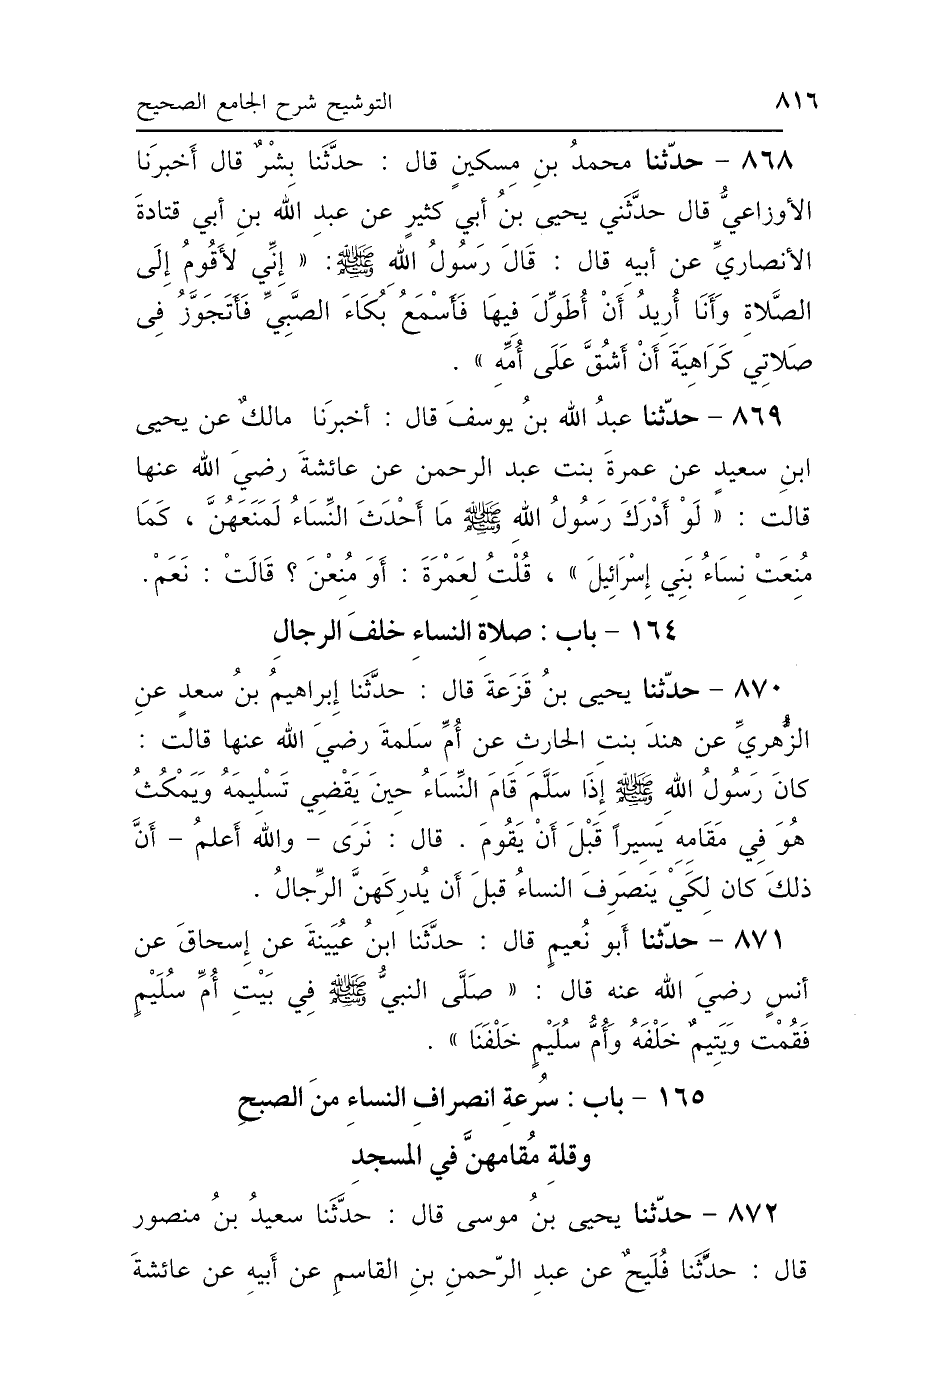 ٨١٦ التوشيح شرح الجامع الصحيح
٨٦٨ – حدّثنا محمدُ بنِ مسكينٍ قال : حدَّثَنا بِشْرٌ قال أَخبرَنا
الأوزاعيُّ قال حدَّثَني يحيى بنُ أبي كثيرٍ عن عبدِ الله بنِ أبي قتادةَ
الأنصاريِّ عن أبيهِ قال : قَالَ رَسُولُ اللهِ ﷺ: « إِنِّي لأَقُومُ إِلَى
الصَّلاةِ وَأَنَا أُرِيدُ أَنْ أُطَوِّلَ فِيهَا فَأَسْمَعُ بُكَاءَ الصَّبِيِّ فَأَتَجَوَّزُ فِى
صَلاتِي كَرَاهِيَةَ أَنْ أَشُقَّ عَلَى أُمِّهِ » .
٨٦٩ – حدّثنا عبدُ الله بنُ يوسفَ قال : أخبرَنا مالكٌ عن يحيى
ابنِ سعيدٍ عن عمرةَ بنت عبد الرحمن عن عائشةَ رضيَ الله عنها
قالت : « لَوْ أَدْرَكَ رَسُولُ اللهِ ﷺ مَا أَحْدَثَ النِّسَاءُ لَمَنَعَهُنَّ ، كَمَا
مُنِعَتْ نِسَاءُ بَنِي إِسْرَائِيلَ » ، قُلْتُ لِعَمْرَةَ : أَوَ مُنِعْنَ ؟ قَالَتْ : نَعَمْ.
١٦٤ – باب : صلاةِ النساءِ خلفَ الرجالِ
٨٧٠ – حدّثنا يحيى بنُ قَزَعةَ قال : حدَّثَنا إبراهيمُ بنُ سعدٍ عنِ
الزُّهريِّ عن هندَ بنتِ الحارثِ عن أُمِّ سَلمةَ رضيَ الله عنها قالت :
كانَ رَسُولُ اللهِ ﷺ إِذَا سَلَّمَ قَامَ النِّسَاءُ حِينَ يَقْضِي تَسْلِيمَهُ وَيَمْكُثُ
هُوَ فِي مَقَامِهِ يَسِيراً قَبْلَ أَنْ يَقُومَ . قال : نَرَى – والله أعلمُ – أنَّ
ذلكَ كان لِكَيْ يَنصَرِفَ النساءُ قبلَ أن يُدرِكَهنَّ الرِّجالُ .
٨٧١ – حدّثنا أبو نُعيمٍ قال : حدَّثَنا ابنُ عُيَينةَ عن إسحاقَ عن
أنسٍ رضيَ الله عنه قال : « صَلَّى النبيُّ ﷺ فِي بَيْتِ أُمِّ سُلَيْمٍ
فَقُمْت وَيَتِيمٌ خَلْفَهُ وَأُمُّ سُلَيْمٍ خَلْفَنَا » .
١٦٥ – باب : سُرعةِ انصرافِ النساءِ منَ الصبحِ
وقلةِ مُقامهنَّ في المسجدِ
٨٧٢ – حدّثنا يحيى بنُ موسى قال : حدَّثَنا سعيدُ بنُ منصور
قال : حدَّثَنا فُلَيحٌ عن عبدِ الرّحمنِ بنِ القاسمِ عن أَبيهِ عن عائشةَ